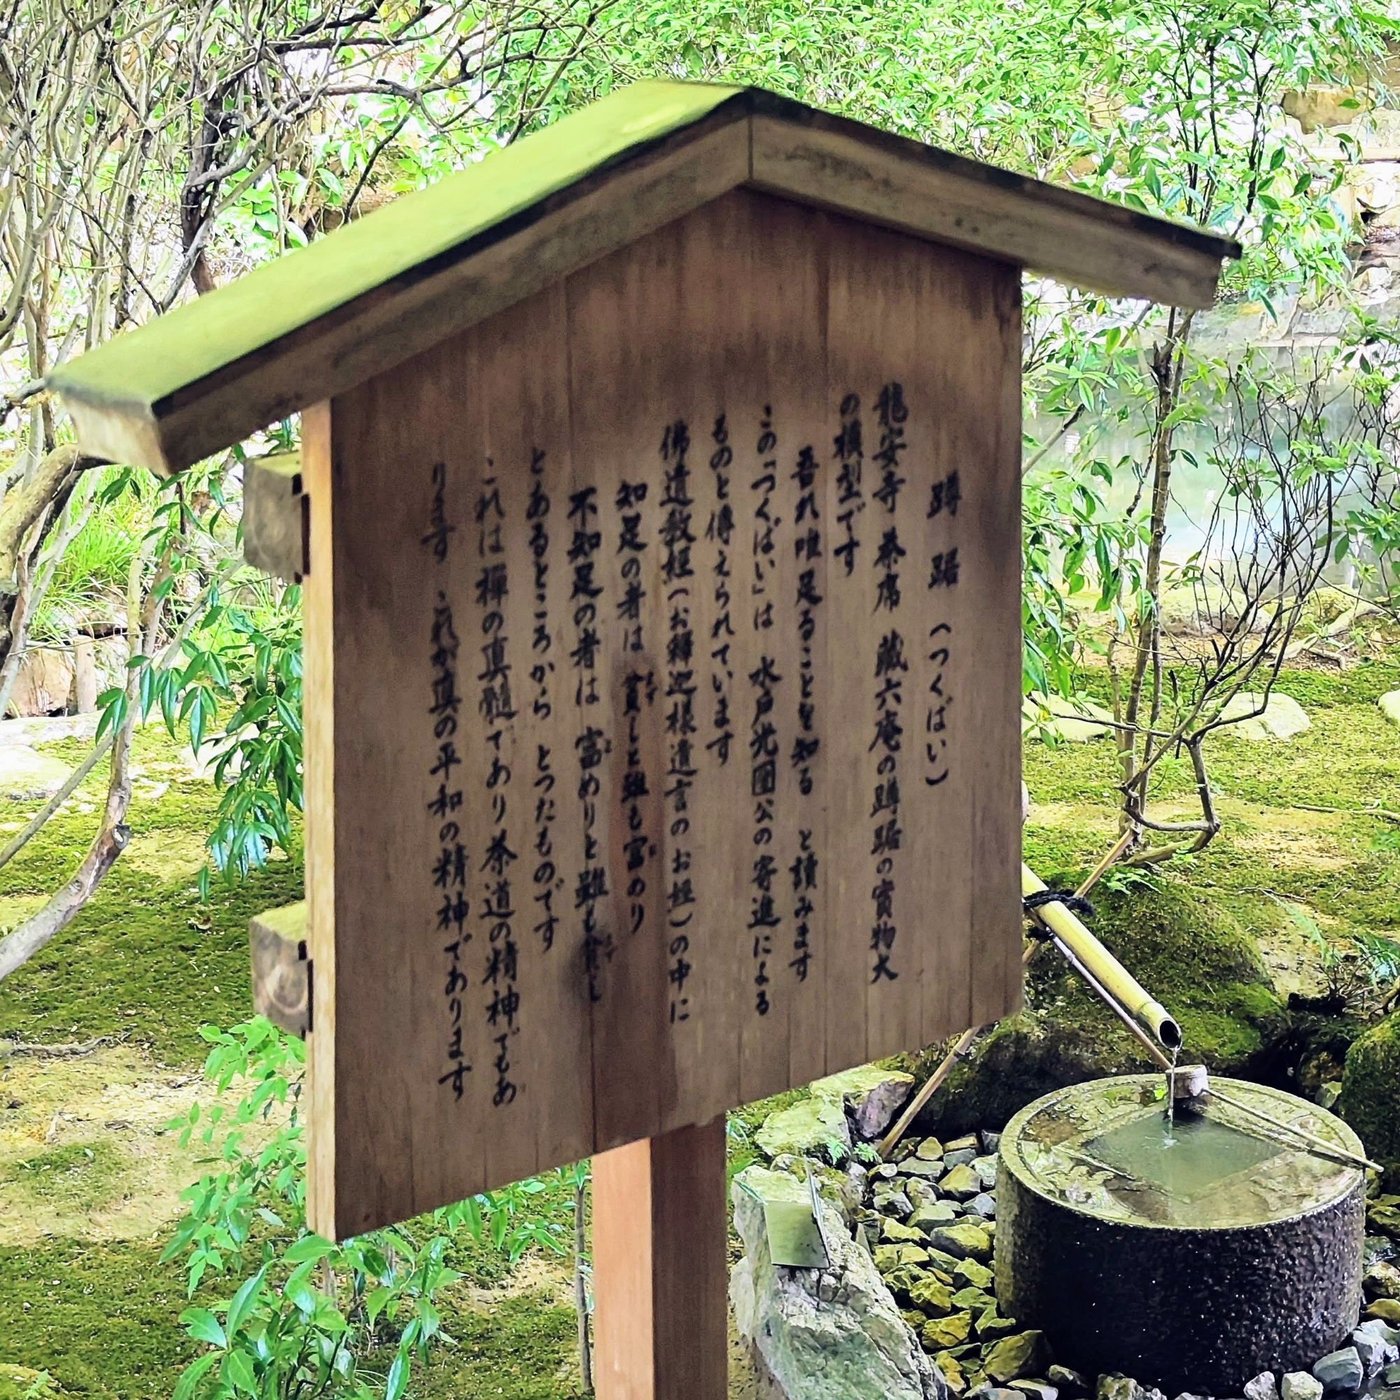 蹲踞（つくばい）
龍安寺 茶席 蔵六庵の蹲踞の實物大
の模型です
吾れ唯足ることを知る と讀みます
この「つくばい」は 水戸光圀公の寄進による
ものと傳えられています
佛遺教経（お釋迦様遺言のお経）の中に
知足の者は 貧しと雖も富めり
不知足の者は 富めりと雖も貧し
とあるところから とつたものです
これは禪の真髄であり茶道の精神でもあ
ります これが真の平和の精神であります